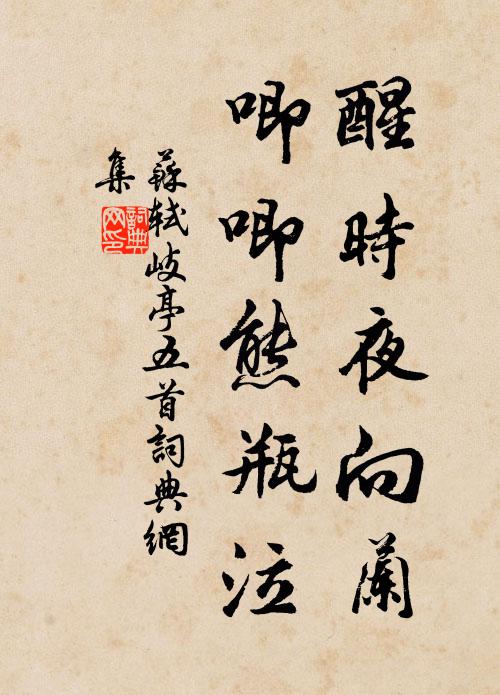 醒時夜向蘭
唧唧熊瓶泣
蘇軾岐亭五首詞典網
集
詞典網印